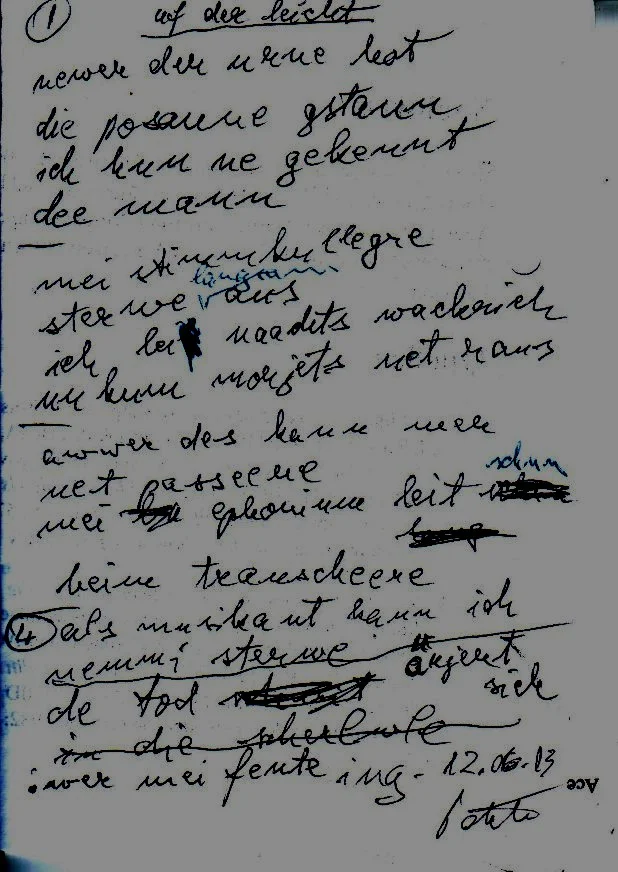 1 uf der leicht
newer der urne hot
die posaune gstann
ich hun ne gekennt
dee mann
mei stimmkullegre
sterwe langsam aus
ich lei naachts wackrich
un kumm morjets net raus
awwer des kann mer
net passeere
mei ephonium leit schun
beim transcheere
4 als musikant kann ich
nemmi sterwe
de tod ärjert sich
in die scherbwe
iwer mei fente ing. 12.06.13
Ace